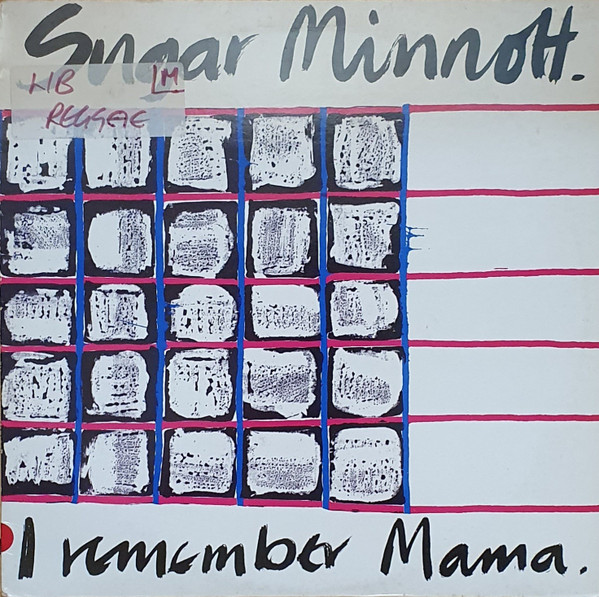 Sugar Minnott.
LIB LM
REGGAE
I remember Mama.